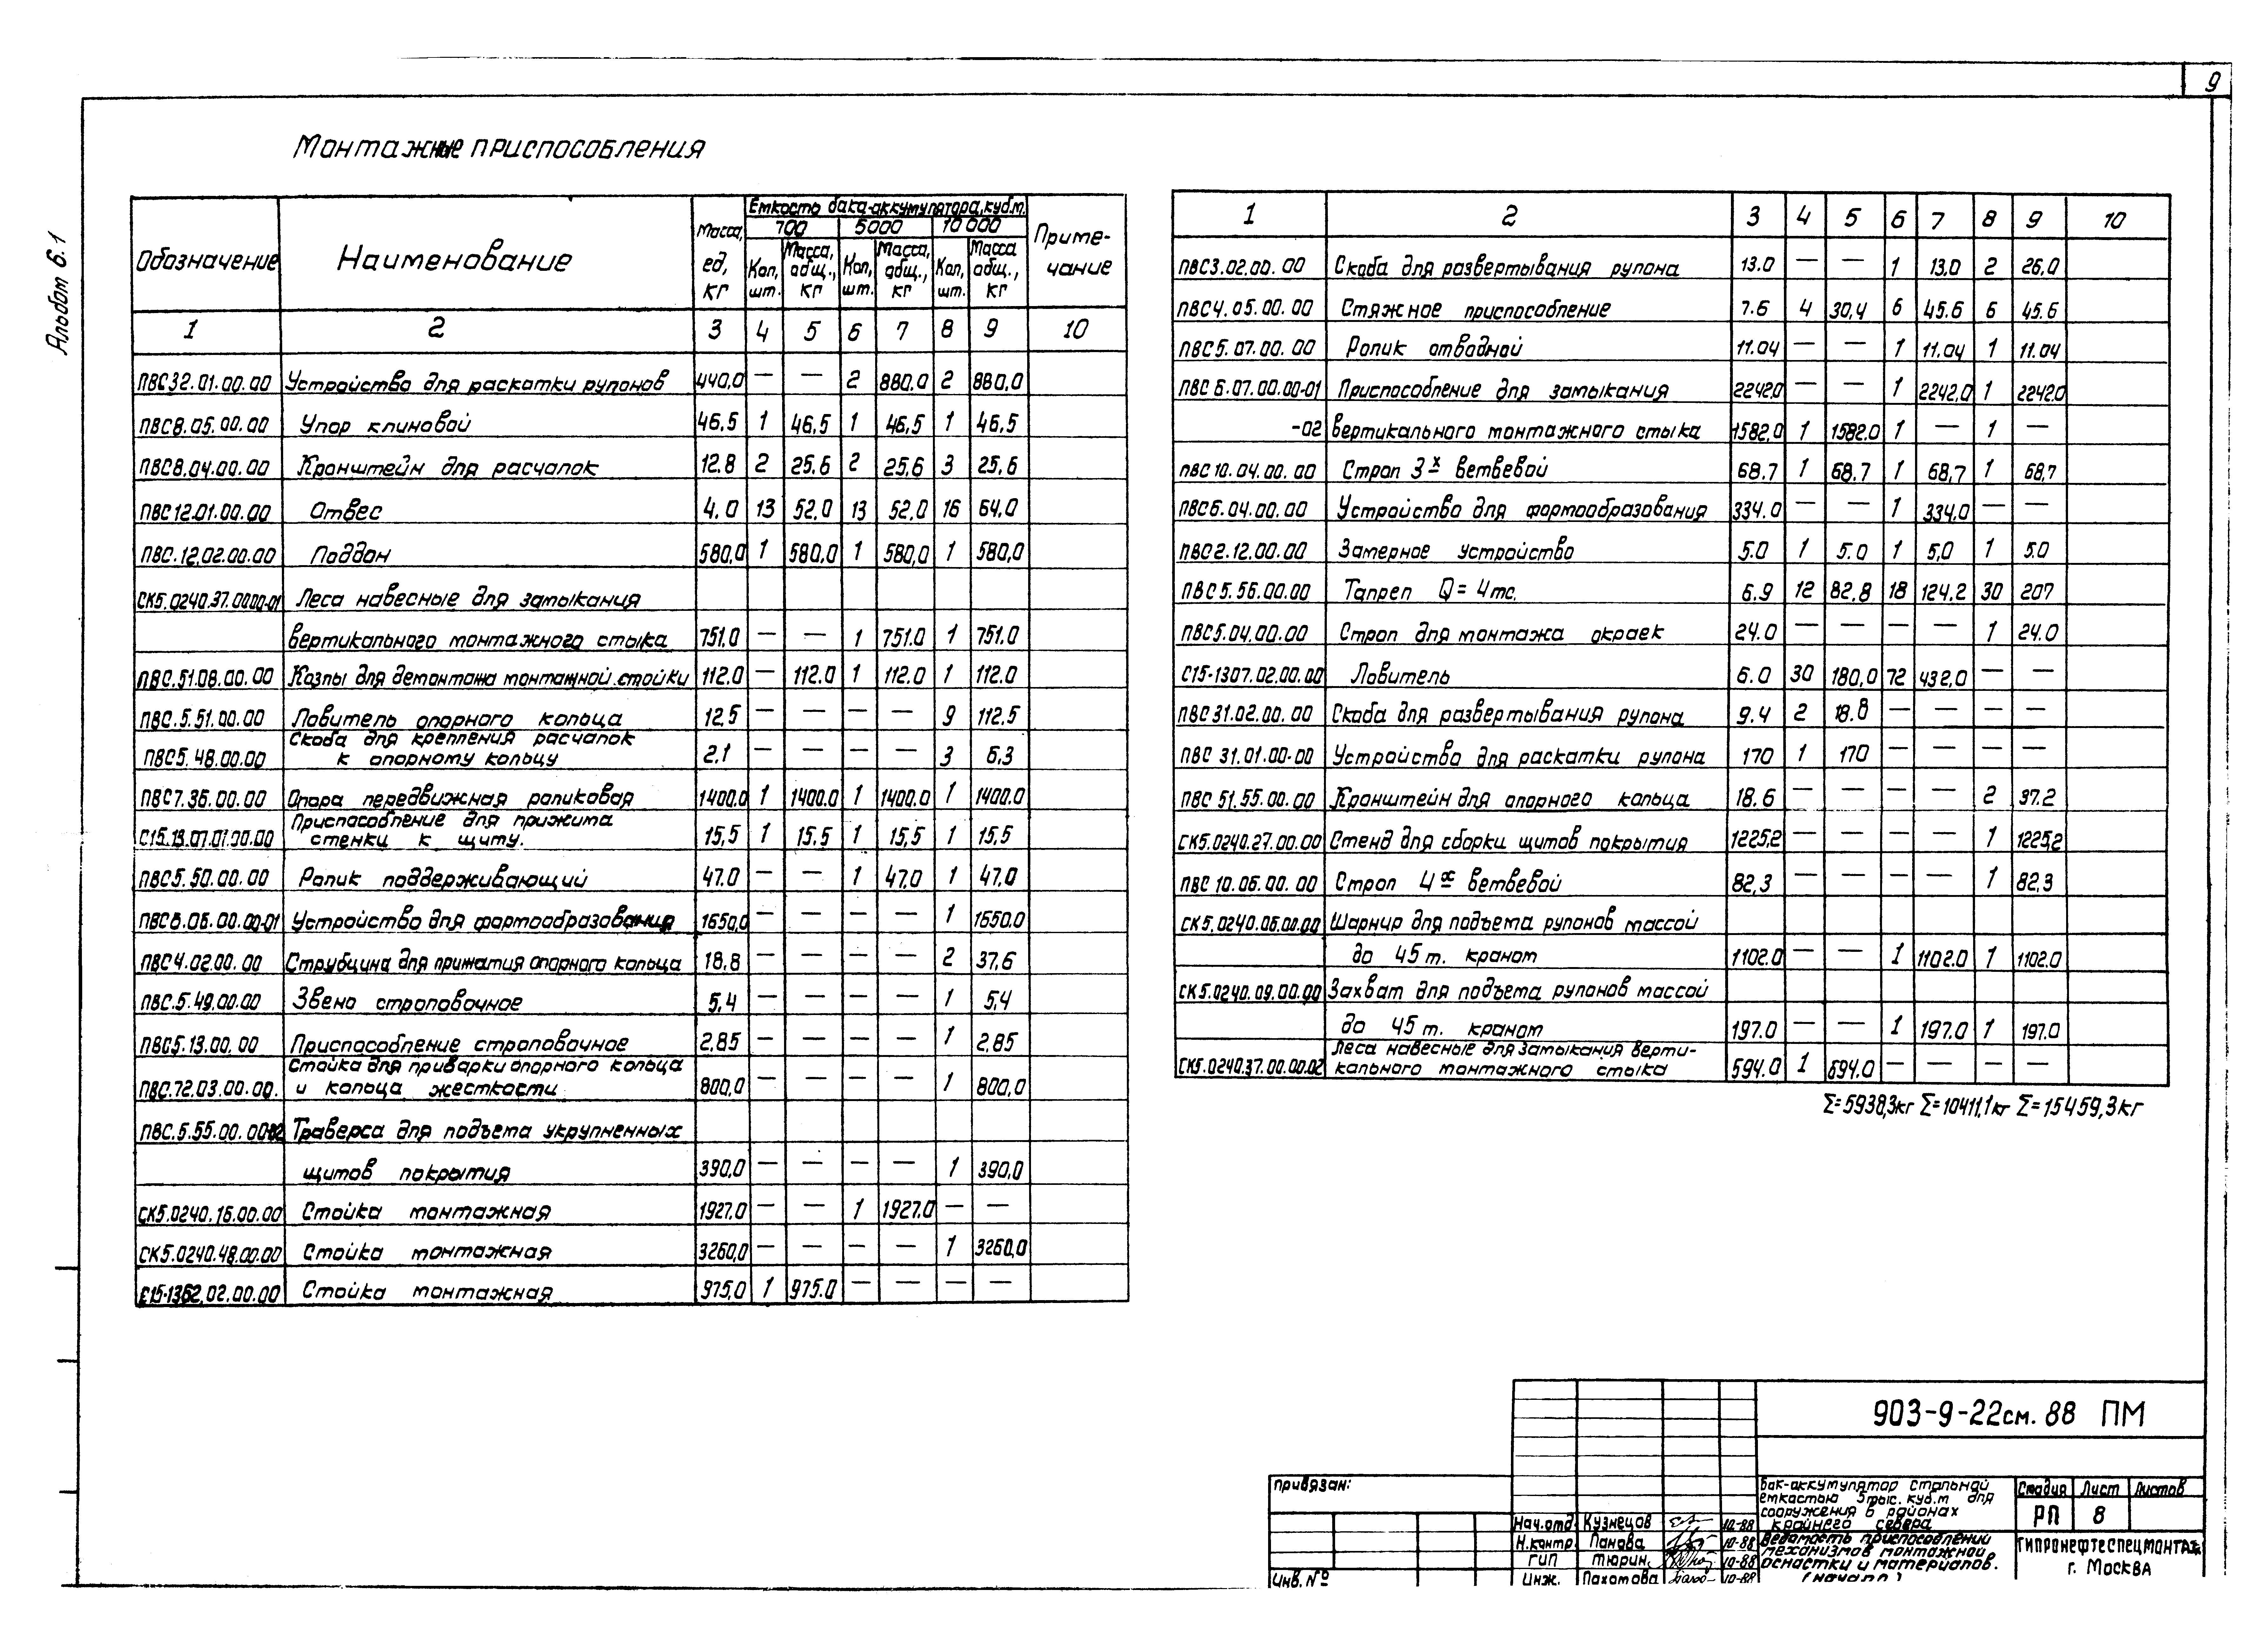 9
Альбом 6.1
Монтажные приспособления
Обозначение Наименование Масса, ед, кг Емкость бака-аккумулятора, куб.м. Примечание
700 5000 10 000
Кол, шт. Масса, общ., кг Кол, шт. Масса, общ., кг Кол, шт. Масса общ., кг
1 2 3 4 5 6 7 8 9 10
ПВС32.01.00.00 Устройство для раскатки рулонов 440,0 — — 2 880,0 2 880,0
ПВС8.05.00.00 Упор клиновой 46,5 1 46,5 1 46,5 1 46,5
ПВС8.04.00.00 Кронштейн для расчалок 12.8 2 25.6 2 25,6 3 25,6
ПВС12.01.00.00 Отвес 4.0 13 52.0 13 52,0 16 64,0
ПВС.12.02.00.00 Поддон 580,0 1 580,0 1 580,0 1 580,0
СК5.0240.37.0000-01 Леса навесные для замыкания
вертикального монтажного стыка 751.0 — — 1 751.0 1 751.0
ПВС.51.08.00.00 Козлы для демонтажа монтажной стойки 112.0 — 112.0 1 112.0 1 112.0
ПВС.5.51.00.00 Ловитель опорного кольца 12,5 — — — — 9 112,5
Скоба для крепления расчалок
ПВС5.48.00.00 к опорному кольцу 2,1 — — — — 3 6,3
ПВС7.36.00.00 Опора передвижная роликовая 1400.0 1 1400.0 1 1400.0 1 1400.0
Приспособление для прижима
С15.13.07.01.00.00 стенки к щиту. 15,5 1 15,5 1 15,5 1 15,5
ПВС5.50.00.00 Ролик поддерживающий 47.0 — — 1 47.0 1 47,0
ПВС6.06.00.00-01 Устройство для формообразования 1650,0 — — — — 1 1650.0
ПВС4.02.00.00 Струбцина для прижатия опорного кольца 18,8 — — — — 2 37,6
ПВС.5.49.00.00 Звено строповочное 5,4 — — — — 1 5,4
ПВС5.13.00.00 Приспособление строповочное 2,85 — — — — 1 2,85
Стойка для приварки опорного кольца
ПВС.72.03.00.00. и кольца жесткости 800,0 — — — — 1 800,0
ПВС.5.55.00.00-02 Траверса для подъема укрупненных
щитов покрытия 390,0 — — — — 1 390,0
СК5.0240.16.00.00 Стойка монтажная 1927.0 — — 1 1927.0 — —
СК5.0240.48.00.00 Стойка монтажная 3260,0 — — — — 1 3260,0
С15-1362.02.00.00 Стойка монтажная 975,0 1 975.0 — — — —
1 2 3 4 5 6 7 8 9 10
ПВС3.02.00.00 Скоба для развертывания рулона 13.0 — — 1 13,0 2 26,0
ПВС4.05.00.00 Стяжное приспособление 7.6 4 30,4 6 45.6 6 45.6
ПВС5.07.00.00 Ролик отводной 11.04 — — 1 11.04 1 11.04
ПВС 6.07.00.00-01 Приспособление для замыкания 2242,0 — — 1 2242,0 1 2242.0
-02 вертикального монтажного стыка 1582,0 1 1582.0 1 — 1 —
ПВС 10.04.00.00 Строп 3х ветвевой 68.7 1 68.7 1 68,7 1 68,7
ПВС6.04.00.00 Устройство для формообразования 334.0 — — 1 334.0 — —
ПВС2.12.00.00 Замерное устройство 5.0 1 5.0 1 5,0 1 5.0
ПВС5.56.00.00 Талреп Q = 4тс. 6.9 12 82,8 18 124.2 30 207
ПВС5.04.00.00 Строп для монтажа окраек 24.0 — — — — 1 24.0
С15-1307.02.00.00 Ловитель 6.0 30 180,0 72 432,0 — —
ПВС31.02.00.00 Скоба для развертывания рулона 9.4 2 18.8 — — — —
ПВС 31.01.00-00 Устройство для раскатки рулона 170 1 170 — — — —
ПВС 51.55.00.00 Кронштейн для опорного кольца 18.6 — — — — 2 37.2
СК5.0240.27.00.00 Стенд для сборки щитов покрытия 1225,2 — — — — 1 1225,2
ПВС 10.06.00.00 Строп 4х ветвевой 82,3 — — — — 1 82,3
СК5.0240.06.00.00 Шарнир для подъема рулонов массой
до 45 т. краном 1102.0 — — 1 1102.0 1 1102.0
СК5.0240.09.00.00 Захват для подъема рулонов массой
до 45 т. краном 197.0 — — 1 197.0 1 197.0
Леса навесные для замыкания верти-
СК5.0240.37.00.00.02 кального монтажного стыка 594.0 1 594.0 — — — —
Σ=5938,3кг Σ=10411,1кг Σ=15459,3кг
903-9-22см. 88 ПМ
привязан:
Инв. №
Нач.отд. Кузнецов 10-88
Н.контр. Панова 10-88
ГИП Тюрин 10-88
Инж. Пахомова 10-88
Бак-аккумулятор стальной
емкостью 5тыс. куб.м для
сооружения в районах
крайнего севера
Ведомость приспособлений
механизмов монтажной
оснастки и материалов.
(начало)
Стадия Лист Листов
РП 8
ГИПРОНЕФТЕСПЕЦМОНТАЖ
г. Москва